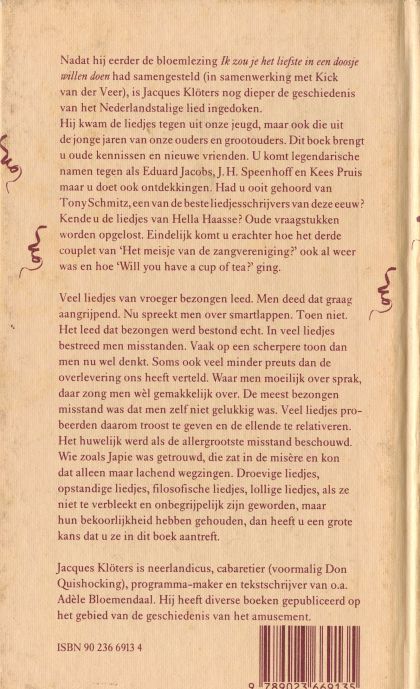 Nadat hij eerder de bloemlezing Ik zou je het liefste in een doosje
willen doen had samengesteld (in samenwerking met Kick
van der Veer), is Jacques Klöters nog dieper de geschiedenis
van het Nederlandstalige lied ingedoken.
Hij kwam de liedjes tegen uit onze jeugd, maar ook die uit
de jonge jaren van onze ouders en grootouders. Dit boek brengt
u oude kennissen en nieuwe vrienden. U komt legendarische
namen tegen als Eduard Jacobs, J.H. Speenhoff en Kees Pruis
maar u doet ook ontdekkingen. Had u ooit gehoord van
Tony Schmitz, een van de beste liedjesschrijvers van deze eeuw?
Kende u de liedjes van Hella Haasse? Oude vraagstukken
worden opgelost. Eindelijk komt u erachter hoe het derde
couplet van 'Het meisje van de zangvereniging?' ook al weer
was en hoe 'Will you have a cup of tea?' ging.
Veel liedjes van vroeger bezongen leed. Men deed dat graag
aangrijpend. Nu spreekt men over smartlappen. Toen niet.
Het leed dat bezongen werd bestond echt. In veel liedjes
bestreed men misstanden. Vaak op een scherpere toon dan
men nu wel denkt. Soms ook veel minder preuts dan de
overlevering ons heeft verteld. Waar men moeilijk over sprak,
daar zong men wèl gemakkelijk over. De meest bezongen
misstand was dat men zelf niet gelukkig was. Veel liedjes pro-
beerden daarom troost te geven en de ellende te relativeren.
Het huwelijk werd als de allergrootste misstand beschouwd.
Wie zoals Japie was getrouwd, die zat in de misère en kon
dat alleen maar lachend wegzingen. Droevige liedjes,
opstandige liedjes, filosofische liedjes, lollige liedjes, als ze
niet te verbleekt en onbegrijpelijk zijn geworden, maar
hun bekoorlijkheid hebben gehouden, dan heeft u een grote
kans dat u ze in dit boek aantreft.
Jacques Klöters is neerlandicus, cabaretier (voormalig Don
Quishocking), programma-maker en tekstschrijver van o.a.
Adèle Bloemendaal. Hij heeft diverse boeken gepubliceerd op
het gebied van de geschiedenis van het amusement.
ISBN 90 236 6913 4
9 789023 669135